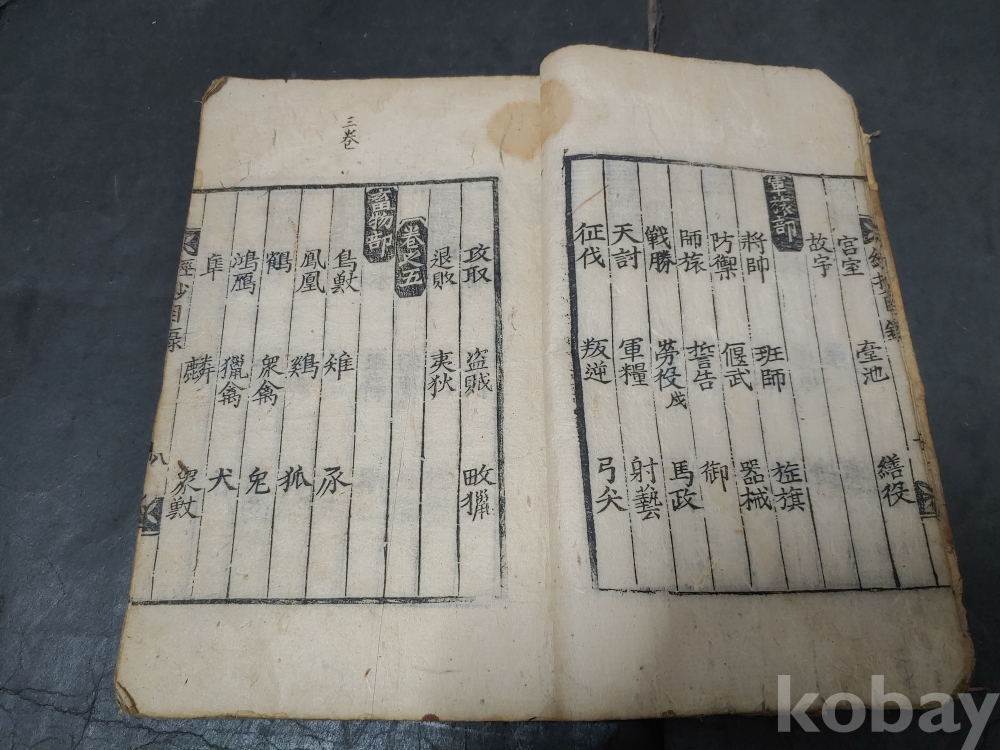 宮室 臺池 繕役
故宇
軍旅部
將帥 班師 旌旗
防禦 偃武 器械
師旅 誓告 御
戰勝 勞役 戍 馬政
天討 軍糧 射藝
征伐 叛逆 弓矢
攻取 盜賊 畋獵
退敗 夷狄
卷之五
三卷
畜物部
鳥獸 雉 豕
鳳凰 鷄 狐
鶴 衆禽 兔
鴻鴈 獵禽 犬
隼 麟 衆獸
經抄目錄
八
kobay